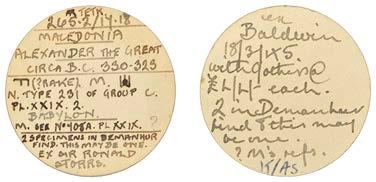 TETR.
265.2/17.18
MACEDONIA
ALEXANDER THE GREAT
CIRCA B.C. 330-323
M.
N. TYPE 231 OF GROUP C.
PL. XXIX. 2.
BABYLON.
M. SER Nº 408A. PL XXIX. 2
2 SPECIMENS IN DEMANHUR
FIND. THIS MAY BE ONE.
EX SIR RONALD
STORRS.
ex
Baldwin
with 9 others @
£4/4/- each.
2 in Demanhur
find & this may
be one.
? M's refs.
K/AS